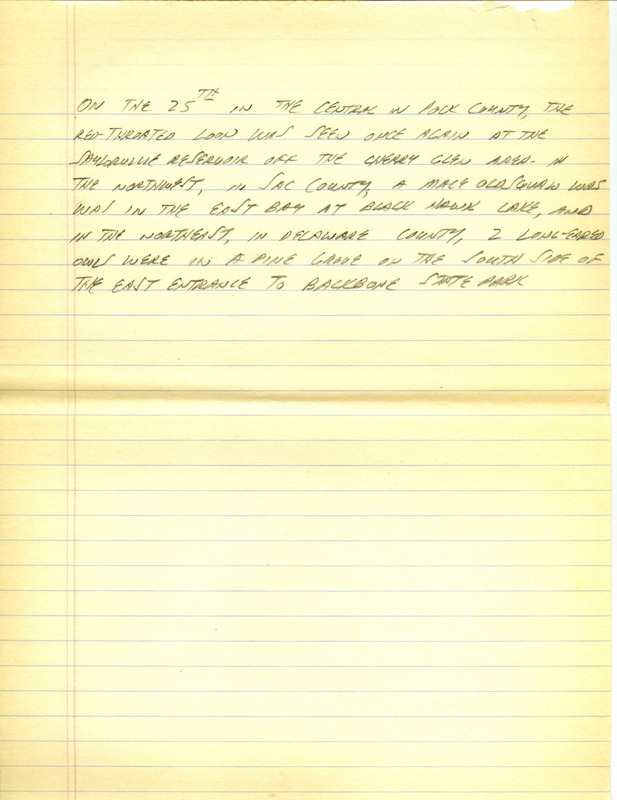 ON THE 25TH IN THE CENTRAL IN POLK COUNTY, THE
RED-THROATED LOON WAS SEEN ONCE AGAIN AT THE
SAYLORVILLE RESERVOIR OFF THE CHERRY GLEN AREA. IN
THE NORTHWEST, IN SAC COUNTY, A MALE OLDSQUAW WAS
WAS IN THE EAST BAY AT BLACK HAWK LAKE, AND
IN THE NORTHEAST, IN DELAWARE COUNTY, 2 LONG-EARED
OWLS WERE IN A PINE GROVE ON THE SOUTH SIDE OF
THE EAST ENTRANCE TO BACKBONE STATE PARK